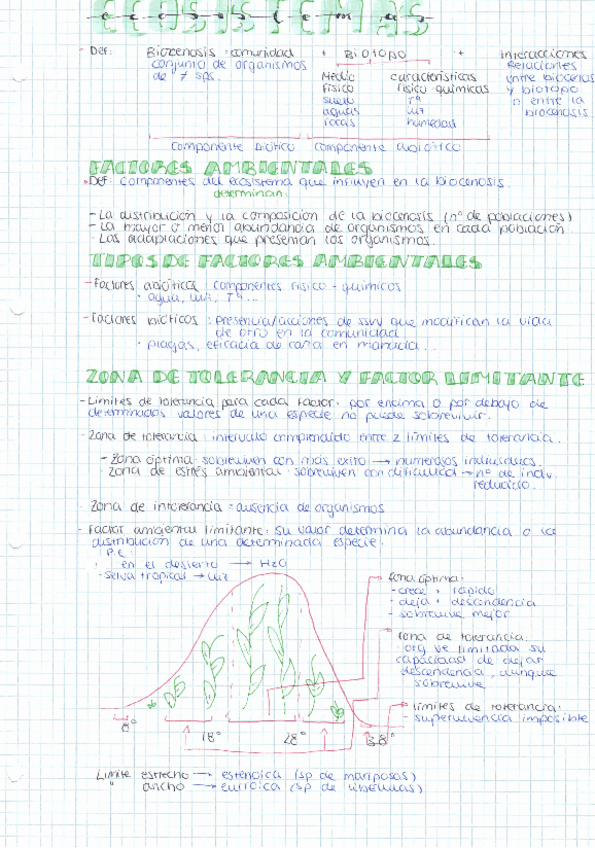 ECOSISTEMAS
- Def: Biocenosis = comunidad + Biotopo + interacciones
conjunto de organismos
de ≠ sps.
Medio físico
suelo
aguas
rocas
características físico químicas
Tª
luz
humedad
Relaciones
entre biocenosis
y biotopo
o entre la
biocenosis
componente biótico componente abiótico
FACTORES AMBIENTALES
Def: componentes del ecosistema que influyen en la biocenosis.
determinan:
- La distribución y la composición de la biocenosis (nº de poblaciones)
- La mayor o menor abundancia de organismos en cada población
- Las adaptaciones que presentan los organismos.
TIPOS DE FACTORES AMBIENTALES
- Factores abióticos: componentes físico-químicos
· agua, luz, Tª...
- Factores bióticos: presencia/acciones de ssvv que modifican la vida
de otro en la comunidad
· plagas, eficacia de caza en manada...
ZONA DE TOLERANCIA Y FACTOR LIMITANTE
- Límites de tolerancia para cada factor: por encima o por debajo de
determinados valores de una especie no puede sobrevivir.
- Zona de tolerancia: intervalo comprendido entre 2 límites de tolerancia.
- Zona óptima: sobreviven con más éxito → numerosos individuos.
- Zona de estrés ambiental: sobreviven con dificultad → nº de indiv.
reducido.
- Zona de intolerancia = ausencia de organismos
- Factor ambiental limitante: su valor determina la abundancia o la
distribución de una determinada especie:
P.E.
· en el desierto → H2O
· selva tropical → luz
zona óptima:
- crece + rápido
- deja + descendencia
- sobrevive mejor
zona de tolerancia:
· org ve limitada su
capacidad de dejar
descendencia, aunque
sobrevive
límites de tolerancia:
- supervivencia imposible
8° 18° 28° 38°
Límite estrecho → estenoica (sp de mariposas)
" ancho → eurioica (sp de libélulas)